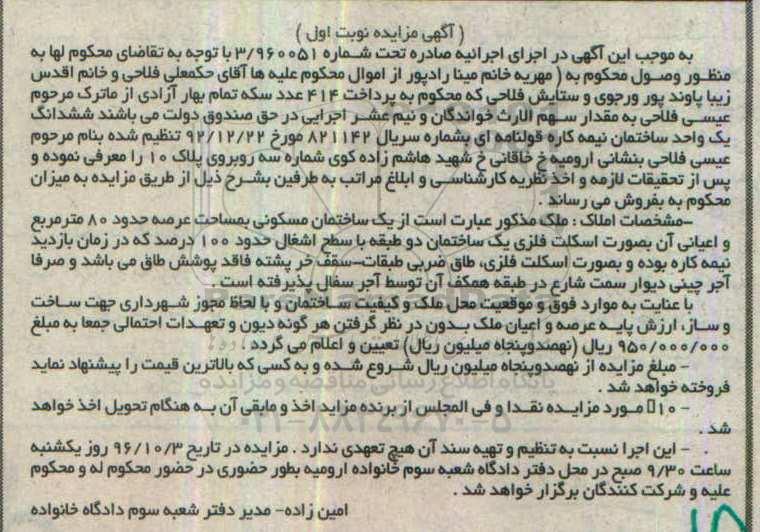 ( آگهی مزایده نوبت اول )
به موجب این آگهی در اجرای اجرائیه صادره تحت شماره ۳/۹۶۰۰۵۱ با توجه به تقاضای محکوم لها به
منظور وصول محکوم به ( مهریه خانم مینا رادپور از اموال محکوم علیه ها آقای حکمعلی فلاحی و خانم اقدس
زیبا پاوند پور ورجوی و ستایش فلاحی که محکوم به پرداخت ۴۱۴ عدد سکه تمام بهار آزادی از ماترک مرحوم
عیسی فلاحی به مقدار سهم الارث خواندگان و نیم عشر اجرایی در حق صندوق دولت می باشند ششدانگ
یک واحد ساختمان نیمه کاره قولنامه ای بشماره سریال ۸۲۱۱۴۲ مورخ ۹۲/۱۲/۲۲ تنظیم شده بنام مرحوم
عیسی فلاحی بنشانی ارومیه خ خاقانی خ شهید هاشم زاده کوی شماره سه روبروی پلاک ۱۰ را معرفی نموده و
پس از تحقیقات لازمه و اخذ نظریه کارشناسی و ابلاغ مراتب به طرفین بشرح ذیل از طریق مزایده به میزان
محکوم به بفروش می رساند .
-مشخصات املاک : ملک مذکور عبارت است از یک ساختمان مسکونی بمساحت عرصه حدود ۸۰ مترمربع
و اعیانی آن بصورت اسکلت فلزی یک ساختمان دو طبقه با سطح اشغال حدود ۱۰۰ درصد که در زمان بازدید
نیمه کاره بوده و بصورت اسکلت فلزی، طاق ضربی طبقات-سقف خر پشته فاقد پوشش طاق می باشد و صرفا
آجر چینی دیوار سمت شارع در طبقه همکف آن توسط آجر سفال پذیرفته است .
با عنایت به موارد فوق و موقعیت محل ملک و کیفیت ساختمان و با لحاظ مجوز شهرداری جهت ساخت
و ساز، ارزش پایه عرصه و اعیان ملک بدون در نظر گرفتن هر گونه دیون و تعهدات احتمالی جمعا به مبلغ
۹۵۰/۰۰۰/۰۰۰ ریال (نهصدوپنجاه میلیون ریال) تعیین و اعلام می گردد .
- مبلغ مزایده از نهصدوپنجاه میلیون ریال شروع شده و به کسی که بالاترین قیمت را پیشنهاد نماید
پایگاه اطلاع رسانی مناقصه و مزایده
فروخته خواهد شد .
- ۱۰ مورد مزایده نقدا و فی المجلس از برنده مزاید اخذ و مابقی آن به هنگام تحویل اخذ خواهد
شد .
۰۲۱-۸۸۳۴۹۶۷۰-۵
- این اجرا نسبت به تنظیم و تهیه سند آن هیچ تعهدی ندارد . مزایده در تاریخ ۹۶/۱۰/۳ روز یکشنبه
ساعت ۹/۳۰ صبح در محل دفتر دادگاه شعبه سوم خانواده ارومیه بطور حضوری در حضور محکوم له و محکوم
علیه و شرکت کنندگان برگزار خواهد شد .
امین زاده- مدیر دفتر شعبه سوم دادگاه خانواده